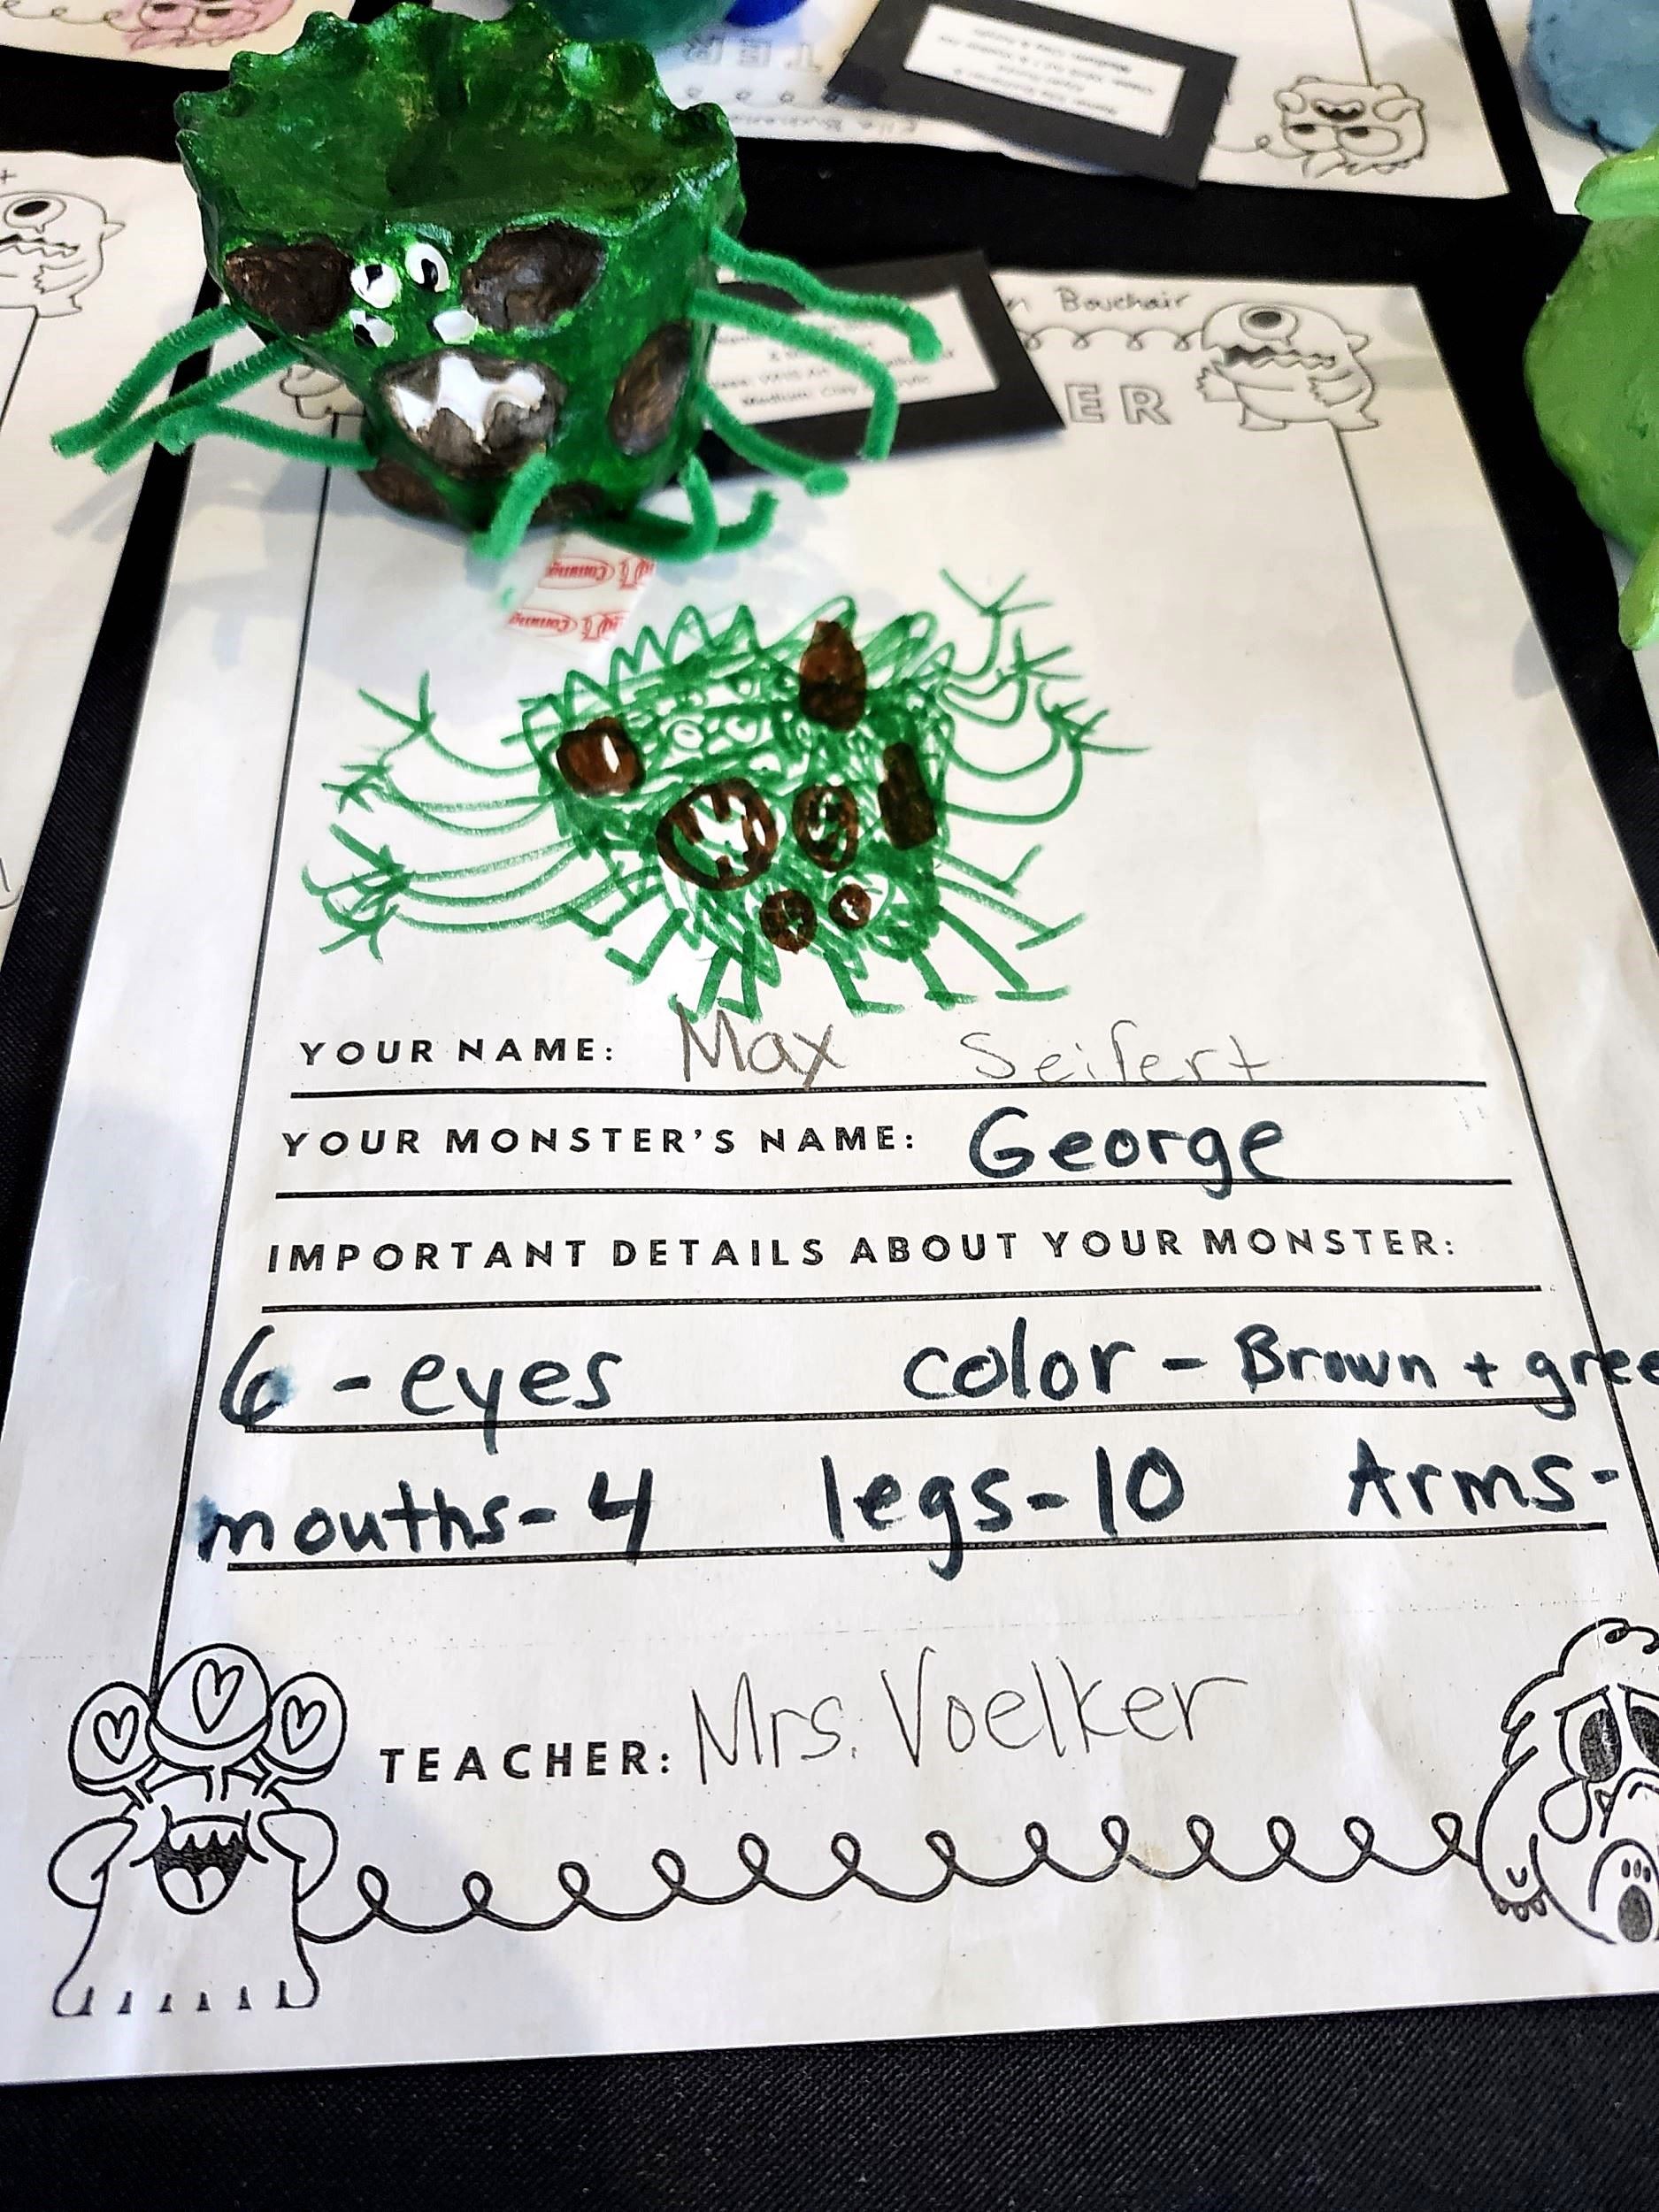 n Bouchair
ER
YOUR NAME: Max Seifert
YOUR MONSTER'S NAME: George
IMPORTANT DETAILS ABOUT YOUR MONSTER:
6 - eyes color - Brown + gree
mouths - 4 legs - 10 Arms -
TEACHER: Mrs. Voelker